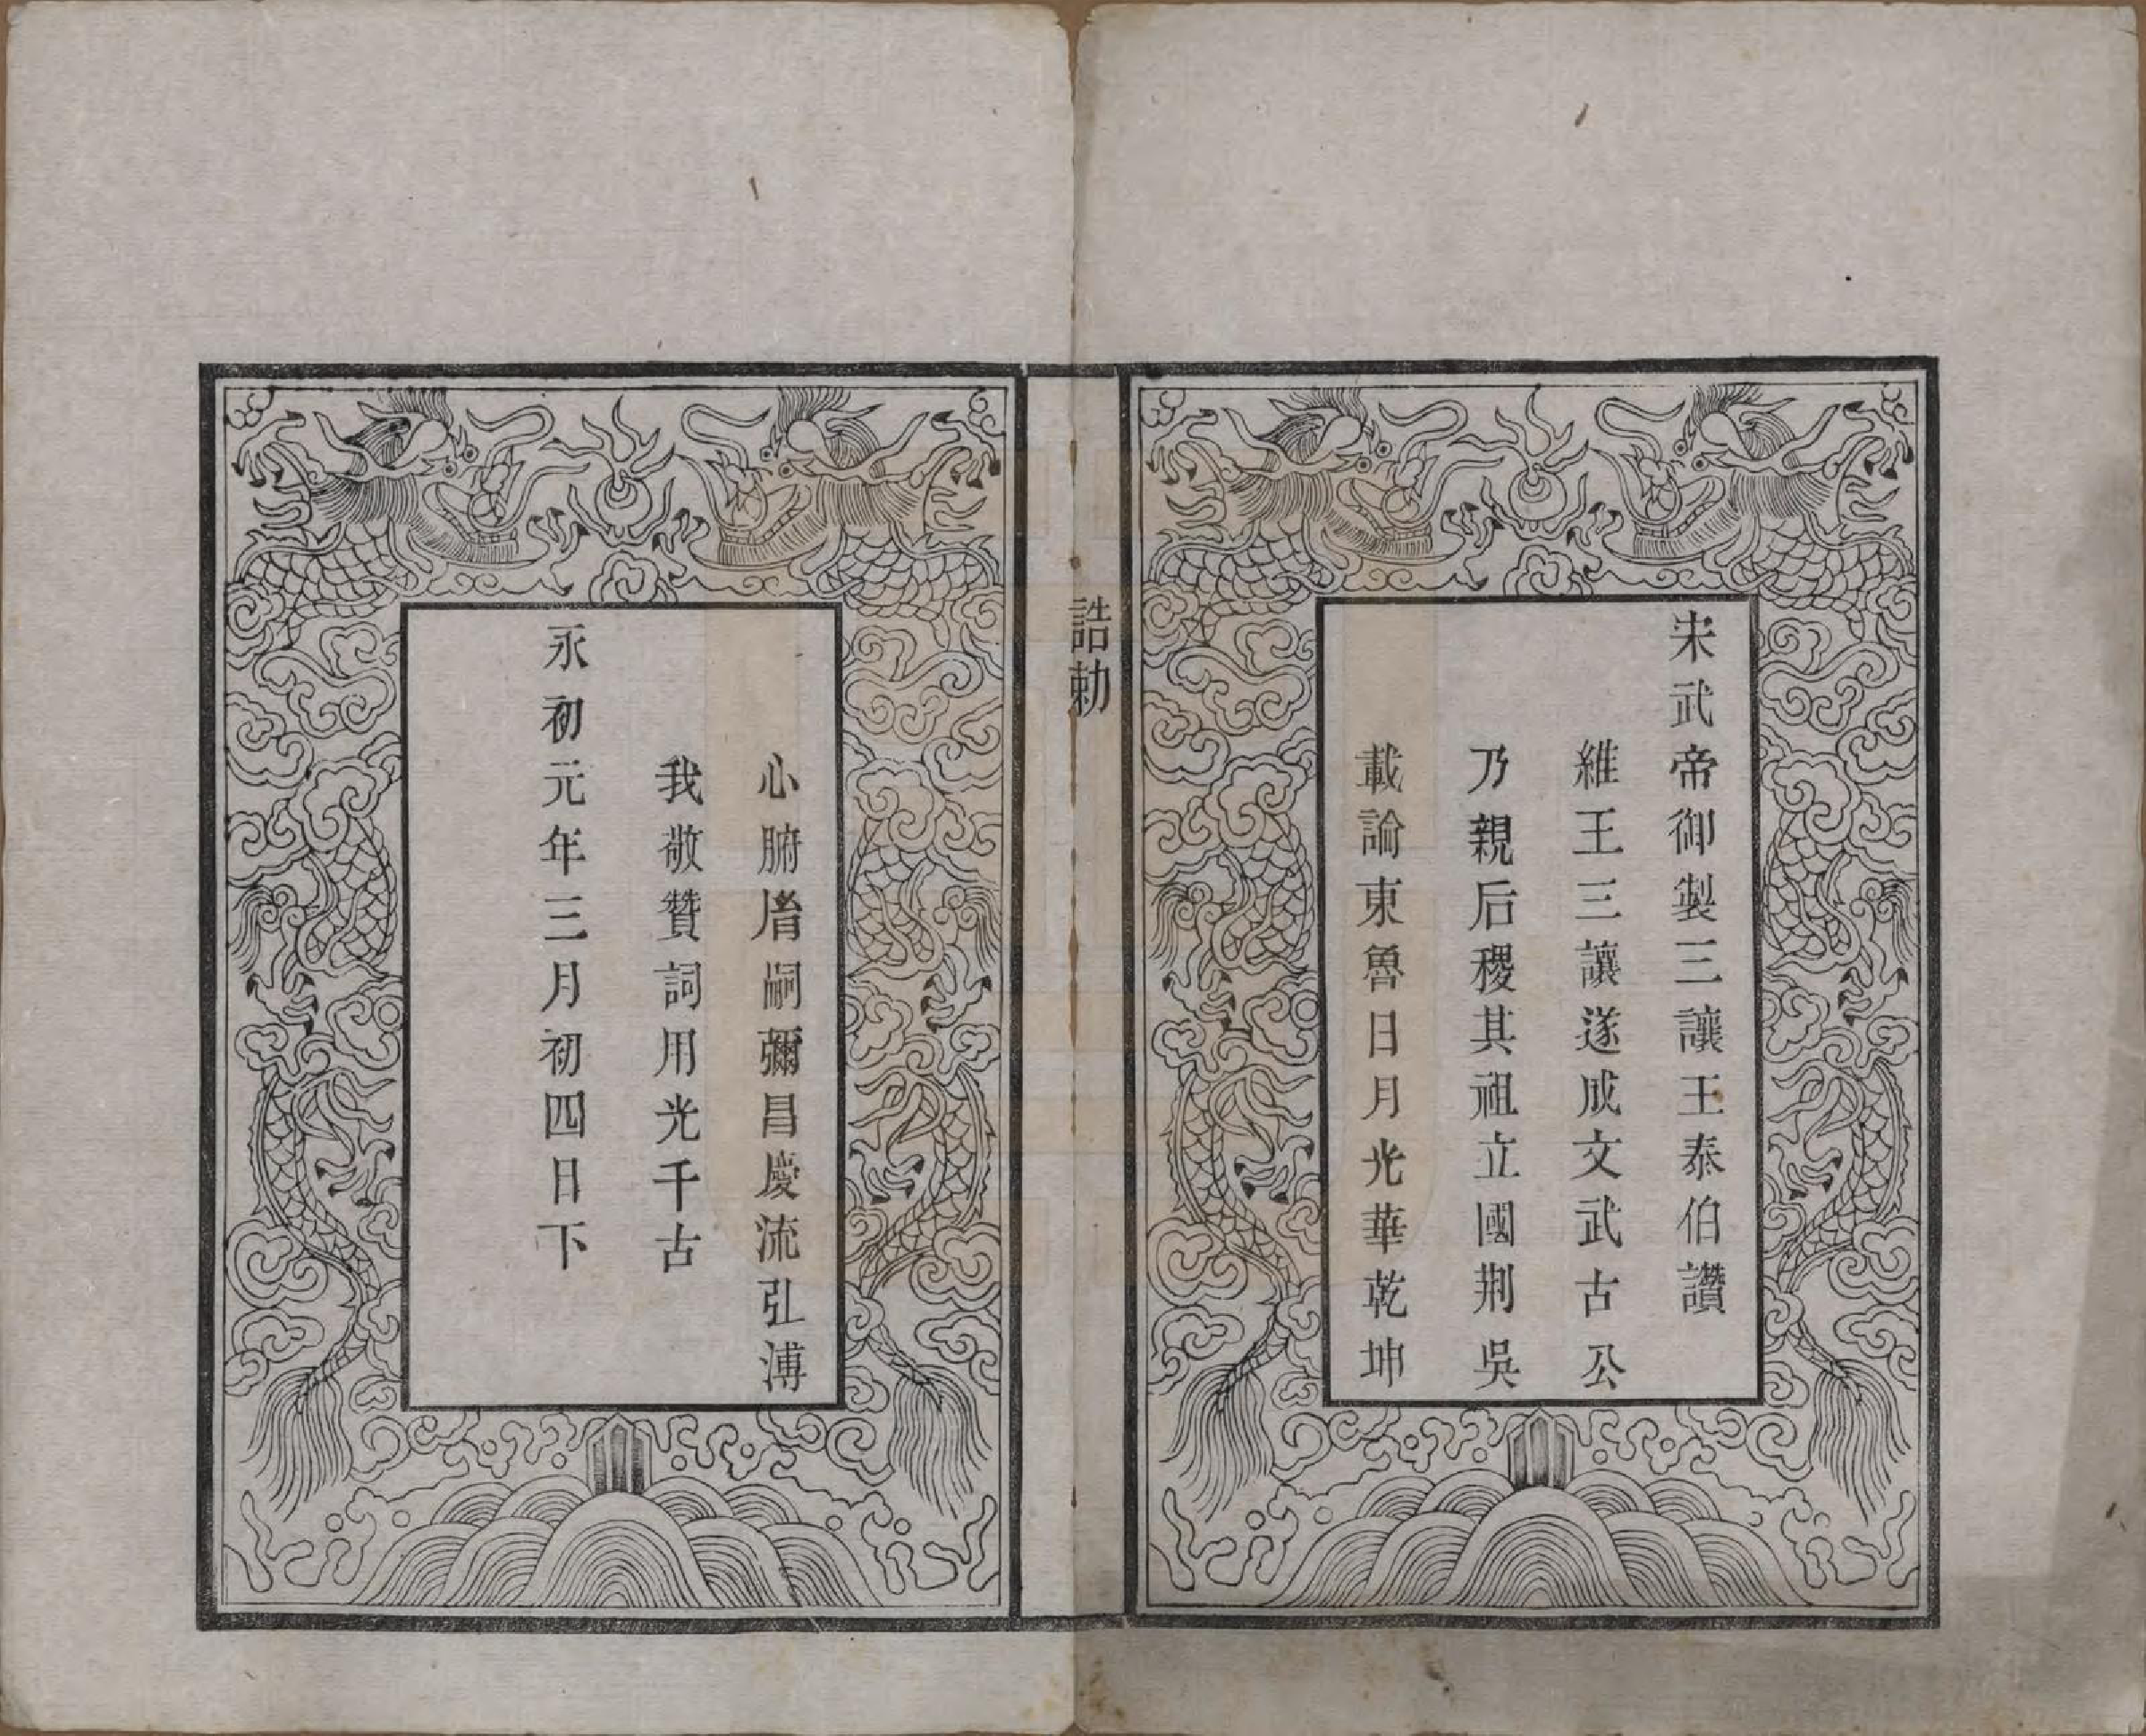 宋武帝御製三讓王泰伯讚
維王三讓遂成文武古公
乃親后稷其祖立國荆吳
載論東魯日月光華乾坤
誥勅
心腑㳙嗣彌昌慶流弘溥
我敬贊詞用光千古
永初元年三月初四日下